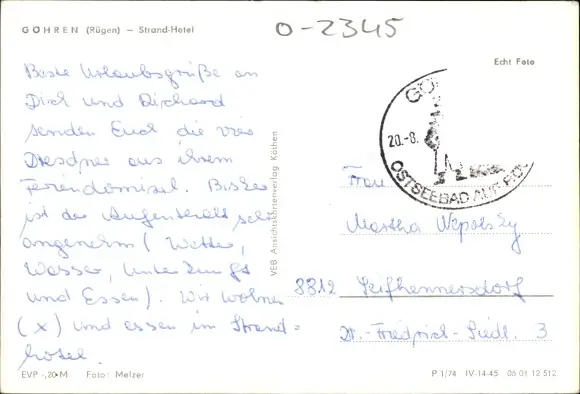 GÖHREN (Rügen) – Strand-Hotel
O-2345
Echt Foto
Beste Urlaubsgrüße an
Dich und Richard
senden Euch die vier
Dresdner aus ihrem
Feriendomizil. Bisher
ist der Aufenthalt sehr
angenehm (Wetter,
Wasser, Unterkunft
und Essen). Wir wohnen
(x) und essen im Strand=
hotel.
VEB Ansichtskartenverlag Köthen
GÖ
20.-8.
OSTSEEBAD AUF RÜG
Frau
Martha
8812 Seifhennersdorf
Dr.-Friedrich-Siedl. 3
EVP -,20 M Foto: Melzer
P 1/74 IV-14-45 06 01 12 512